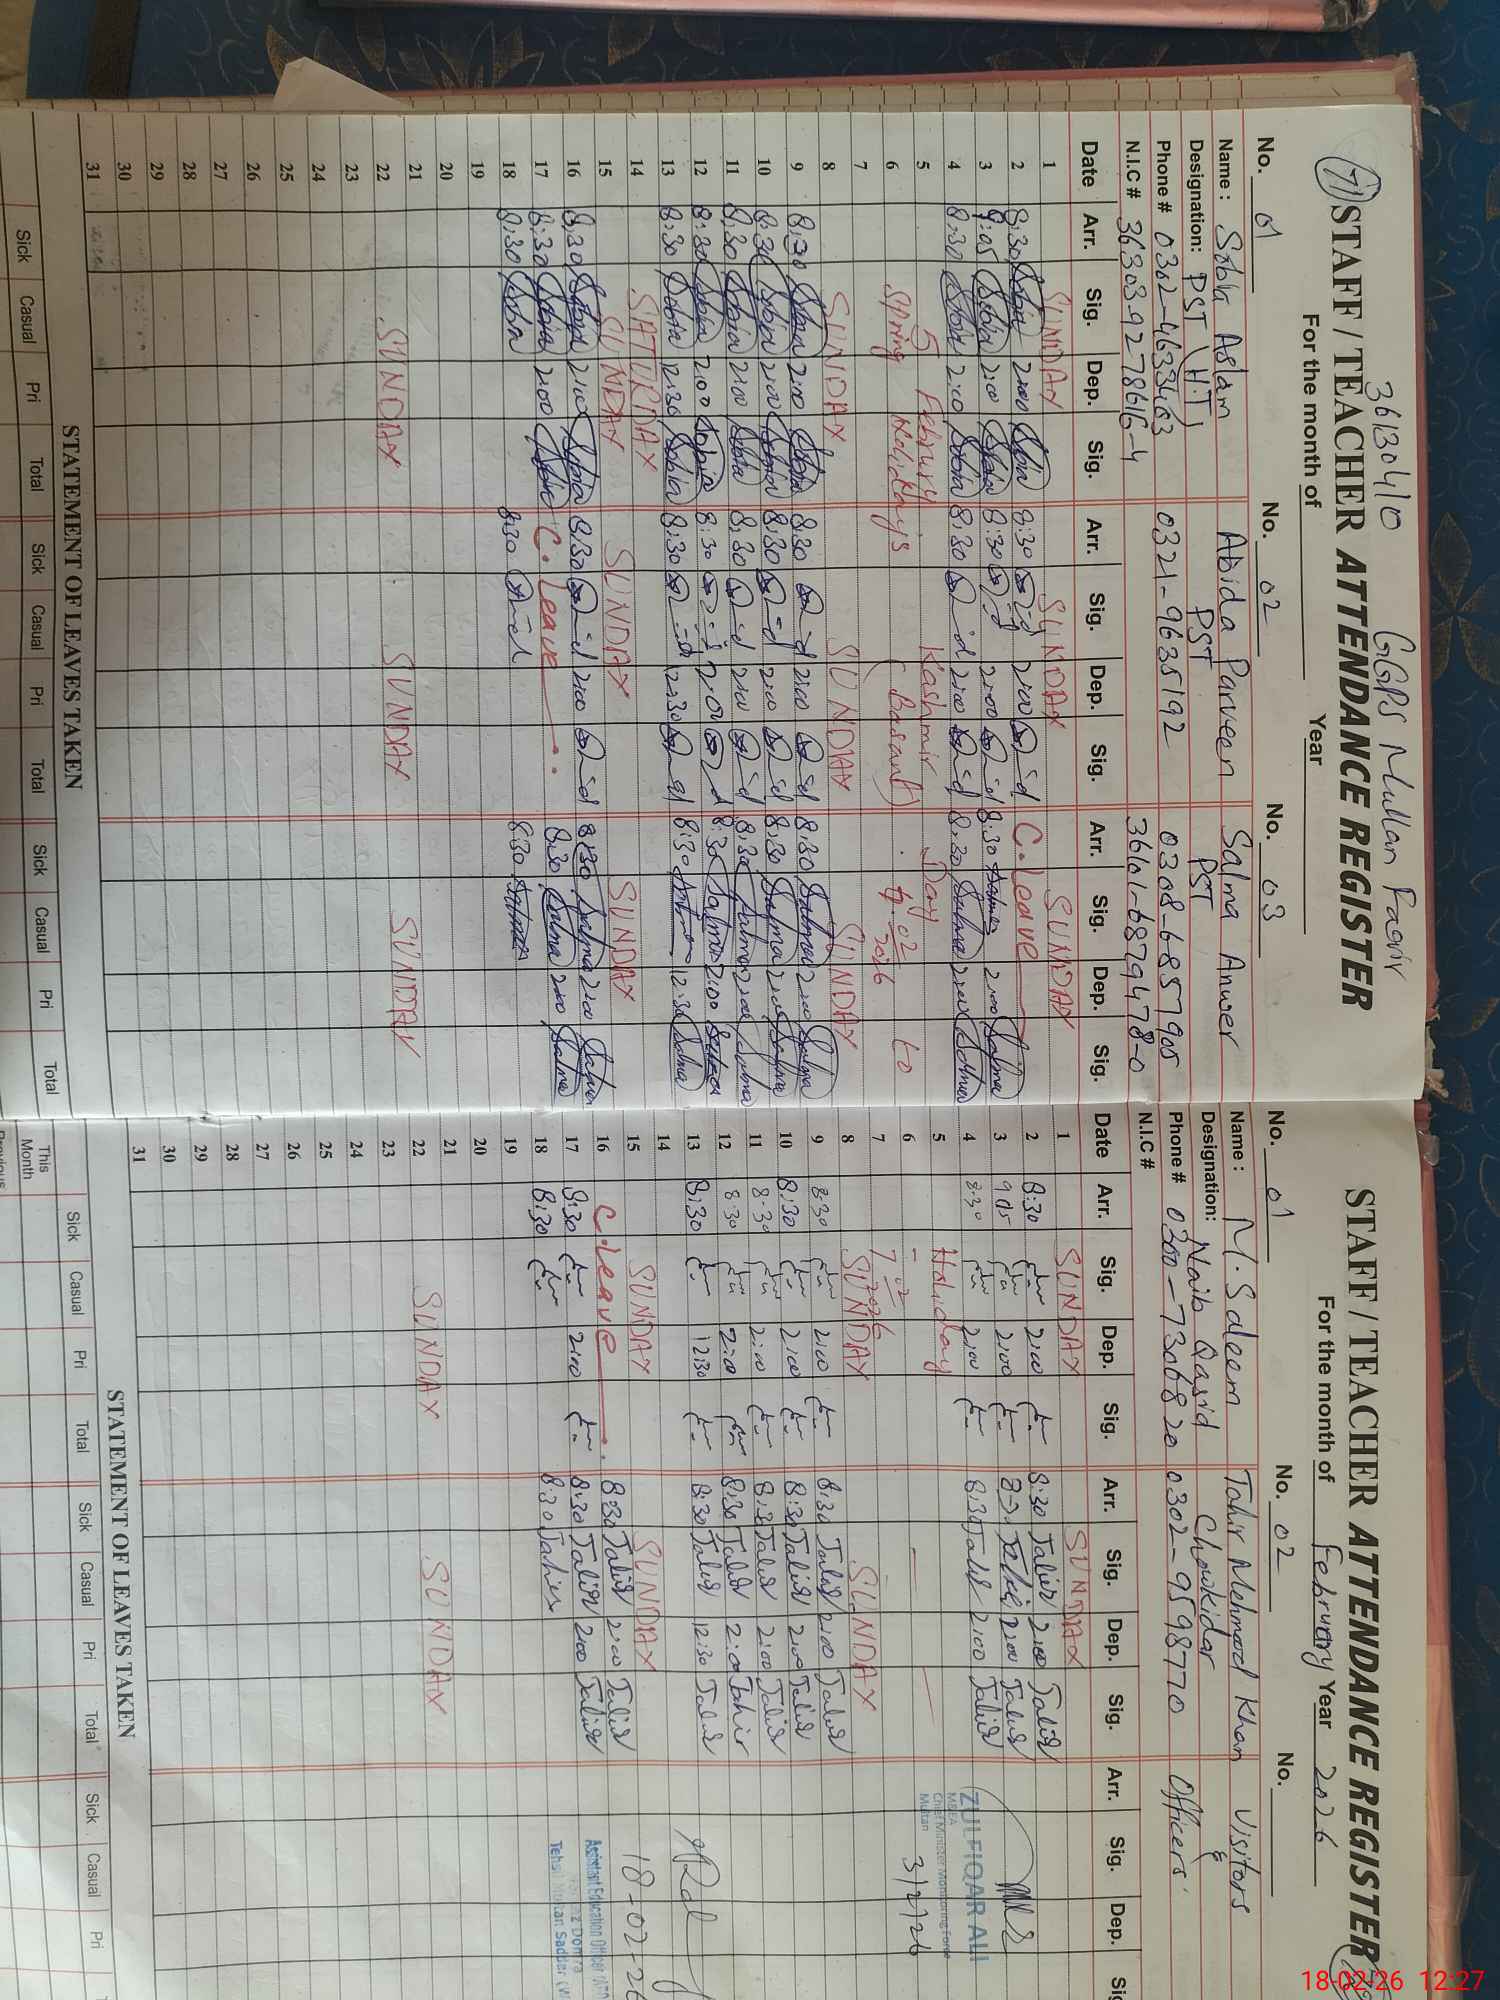 36130410 GGPS Mullan Faqir
71 STAFF / TEACHER ATTENDANCE REGISTER
For the month of Year
No. 01 No. 02 No. 03
Name : Sobia Aslam Abida Parveen Salma Anwer
Designation: PST (H.T) PST PST
Phone # 0302-4633463 0321-9635192 0308-6857905
N.I.C # 36303-9278616-4 36101-6879478-0
Date Arr. Sig. Dep. Sig. Arr. Sig. Dep. Sig. Arr. Sig. Dep. Sig.
1 SUNDAY SUNDAY SUNDAY
2 8:30 Sobia 2:00 Sobia 8:30 2:00 C.leave
3 9:05 Sobia 2:00 Sobia 8:30 2:00 8:30 Salma 2:00 Salma
4 8:30 Sobia 2:00 Sobia 8:30 2:00 8:30 Salma 2:00 Salma
5 5 Februry Kashmir Day
6 Spring Holidays (Basant) 6.02 2026 to
7
8 SUNDAY SUNDAY SUNDAY
9 8:30 Sobia 2:00 Sobia 8:30 2:00 8:30 Salma 2:00 Salma
10 8:30 Sobia 2:00 Sobia 8:30 2:00 8:30 Salma 2:00 Salma
11 8:30 Sobia 2:00 Sobia 8:30 2:00 8:30 Salma 2:00 Salma
12 8:30 Sobia 2:00 Sobia 8:30 2:00 8:30 Salma 2:00 Salma
13 8:30 Sobia 12:30 Sobia 8:30 12:30 8:30 Salma 12:30 Salma
14 SATURDAY
15 SUNDAY SUNDAY SUNDAY
16 8:30 Sobia 2:00 Sobia 8:30 2:00 8:30 Salma 2:00 Salma
17 8:30 Sobia 2:00 Sobia C.leave 8:30 Salma 2:00 Salma
18 8:30 Sobia 8:30 8:30 Salma
19
20
21
22 SUNDAY SUNDAY SUNDAY
23
24
25
26
27
28
29
30
31
STATEMENT OF LEAVES TAKEN
Sick Casual Pri Total Sick Casual Pri Total Sick Casual Pri Total
STAFF / TEACHER ATTENDANCE REGISTER
For the month of February Year 2026
No. 01 No. 02 No.
Name : M. Saleem Tahir Mehmood Khan Visitors
Designation: Naib Qasid Chowkidar &
Phone # 0300-7306820 0302-9598770 Officers
N.I.C #
Date Arr. Sig. Dep. Sig. Arr. Sig. Dep. Sig. Arr. Sig. Dep.
1 SUNDAY SUNDAY
2 8:30 2:00 8:30 Tahir 2:00 Tahir
3 9:05 2:00 2:00 Tahir
4 8:30 2:00 8:30 Tahir 2:00 Tahir
ZULFIQAR ALI
MSEA
Chief Minister Monitoring Force
Multan
3/2/26
5 Holiday
6
7 7.02 2026
8 SUNDAY SUNDAY
9 8:30 2:00 8:30 Tahir 2:00 Tahir
10 8:30 2:00 8:30 Tahir 2:00 Tahir
11 8:30 2:00 8:30 Tahir 2:00 Tahir
12 8:30 2:00 8:30 Tahir 2:00 Tahir
13 8:30 12:30 8:30 Tahir 12:30 Tahir
14
15 SUNDAY SUNDAY
16 C.leave 8:30 Tahir 2:00 Tahir
17 8:30 2:00 8:30 Tahir 2:00 Tahir
18 8:30 8:30 Tahir
18-02-26
Assistant Education Officer
Tehsil Multan Sadder
19
20
21
22 SUNDAY SUNDAY
23
24
25
26
27
28
29
30
31
STATEMENT OF LEAVES TAKEN
Sick Casual Pri Total Sick Casual Pri Total Sick Casual Pri
This Month
Previous
18-02-26 12:27